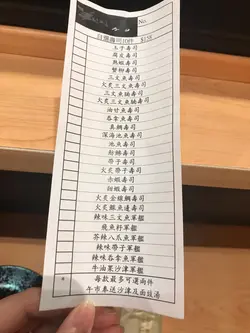 No.
自選壽司10件 $138
玉子壽司
腐皮壽司
熟蝦壽司
蟹柳壽司
三文魚壽司
火炙三文魚壽司
三文魚腩壽司
火炙三文魚腩壽司
油甘魚壽司
吞拿魚壽司
真鯛壽司
深海池魚壽司
池魚壽司
劍魚壽司
帶子壽司
火炙帶子壽司
赤蝦壽司
甜蝦壽司
火炙金鎗鯛壽司
火炙鰈魚邊壽司
辣味三文魚軍艦
飛魚籽軍艦
芥辣八爪魚軍艦
辣味帶子軍艦
辣味吞拿魚軍艦
牛油果沙津軍艦
每款最多可選兩件
午市奉送沙津及麵豉湯